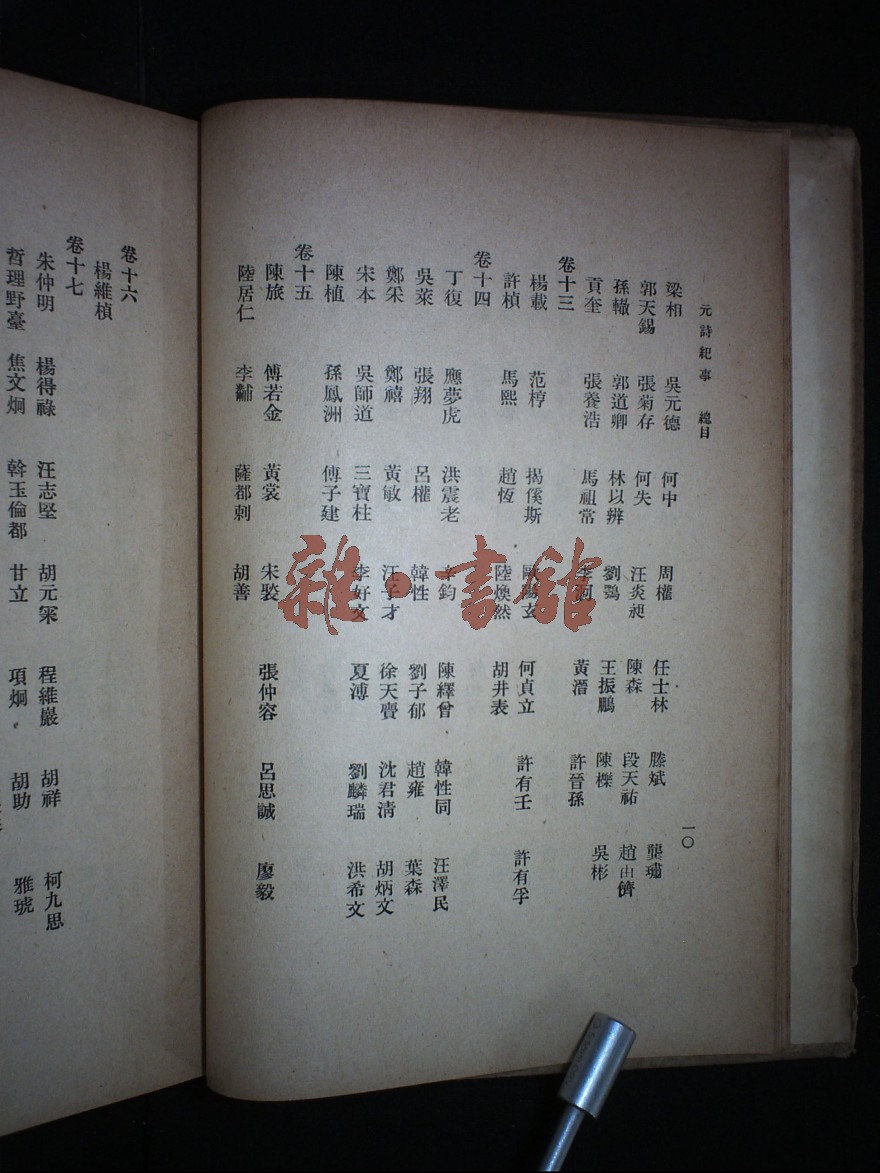 元詩紀事　總目　一〇
梁相　吳元德　何中　周權　任士林　滕斌　龔璛
郭天錫　張菊存　何失　汪炎昶　陳森　段天祐　趙由儕
孫轍　郭道卿　林以辨　劉鶚　王振鵬　陳櫟　吳彬
貢奎　張養浩　馬祖常　李泂　黃溍　許晉孫
卷十三
楊載　范梈　揭傒斯　歐陽玄　何貞立　許有壬　許有孚
許楨　馬熙　趙恆　陸煥然　胡井表
卷十四
丁復　應夢虎　洪震老　辛鈞　陳繹曾　韓性同　汪澤民
吳萊　張翔　呂權　韓性　劉子郁　趙雍　葉森
鄭采　鄭禧　黃敏　汪子才　徐天賣　沈君清　胡炳文
宋本　吳師道　三寶柱　李好文　夏溥　劉麟瑞　洪希文
陳植　孫鳳洲　傅子建
卷十五
陳旅　傅若金　黃裳　宋褧　張仲容　呂思誠　廖毅
陸居仁　李黼　薩都剌　胡善
卷十六
楊維楨
卷十七
朱仲明　楊得祿　汪志堅　胡元　程維巖　胡祥　柯九思
哲理野臺　焦文炯　斡玉倫都　甘立　項炯　胡助　雅琥
雜·書館